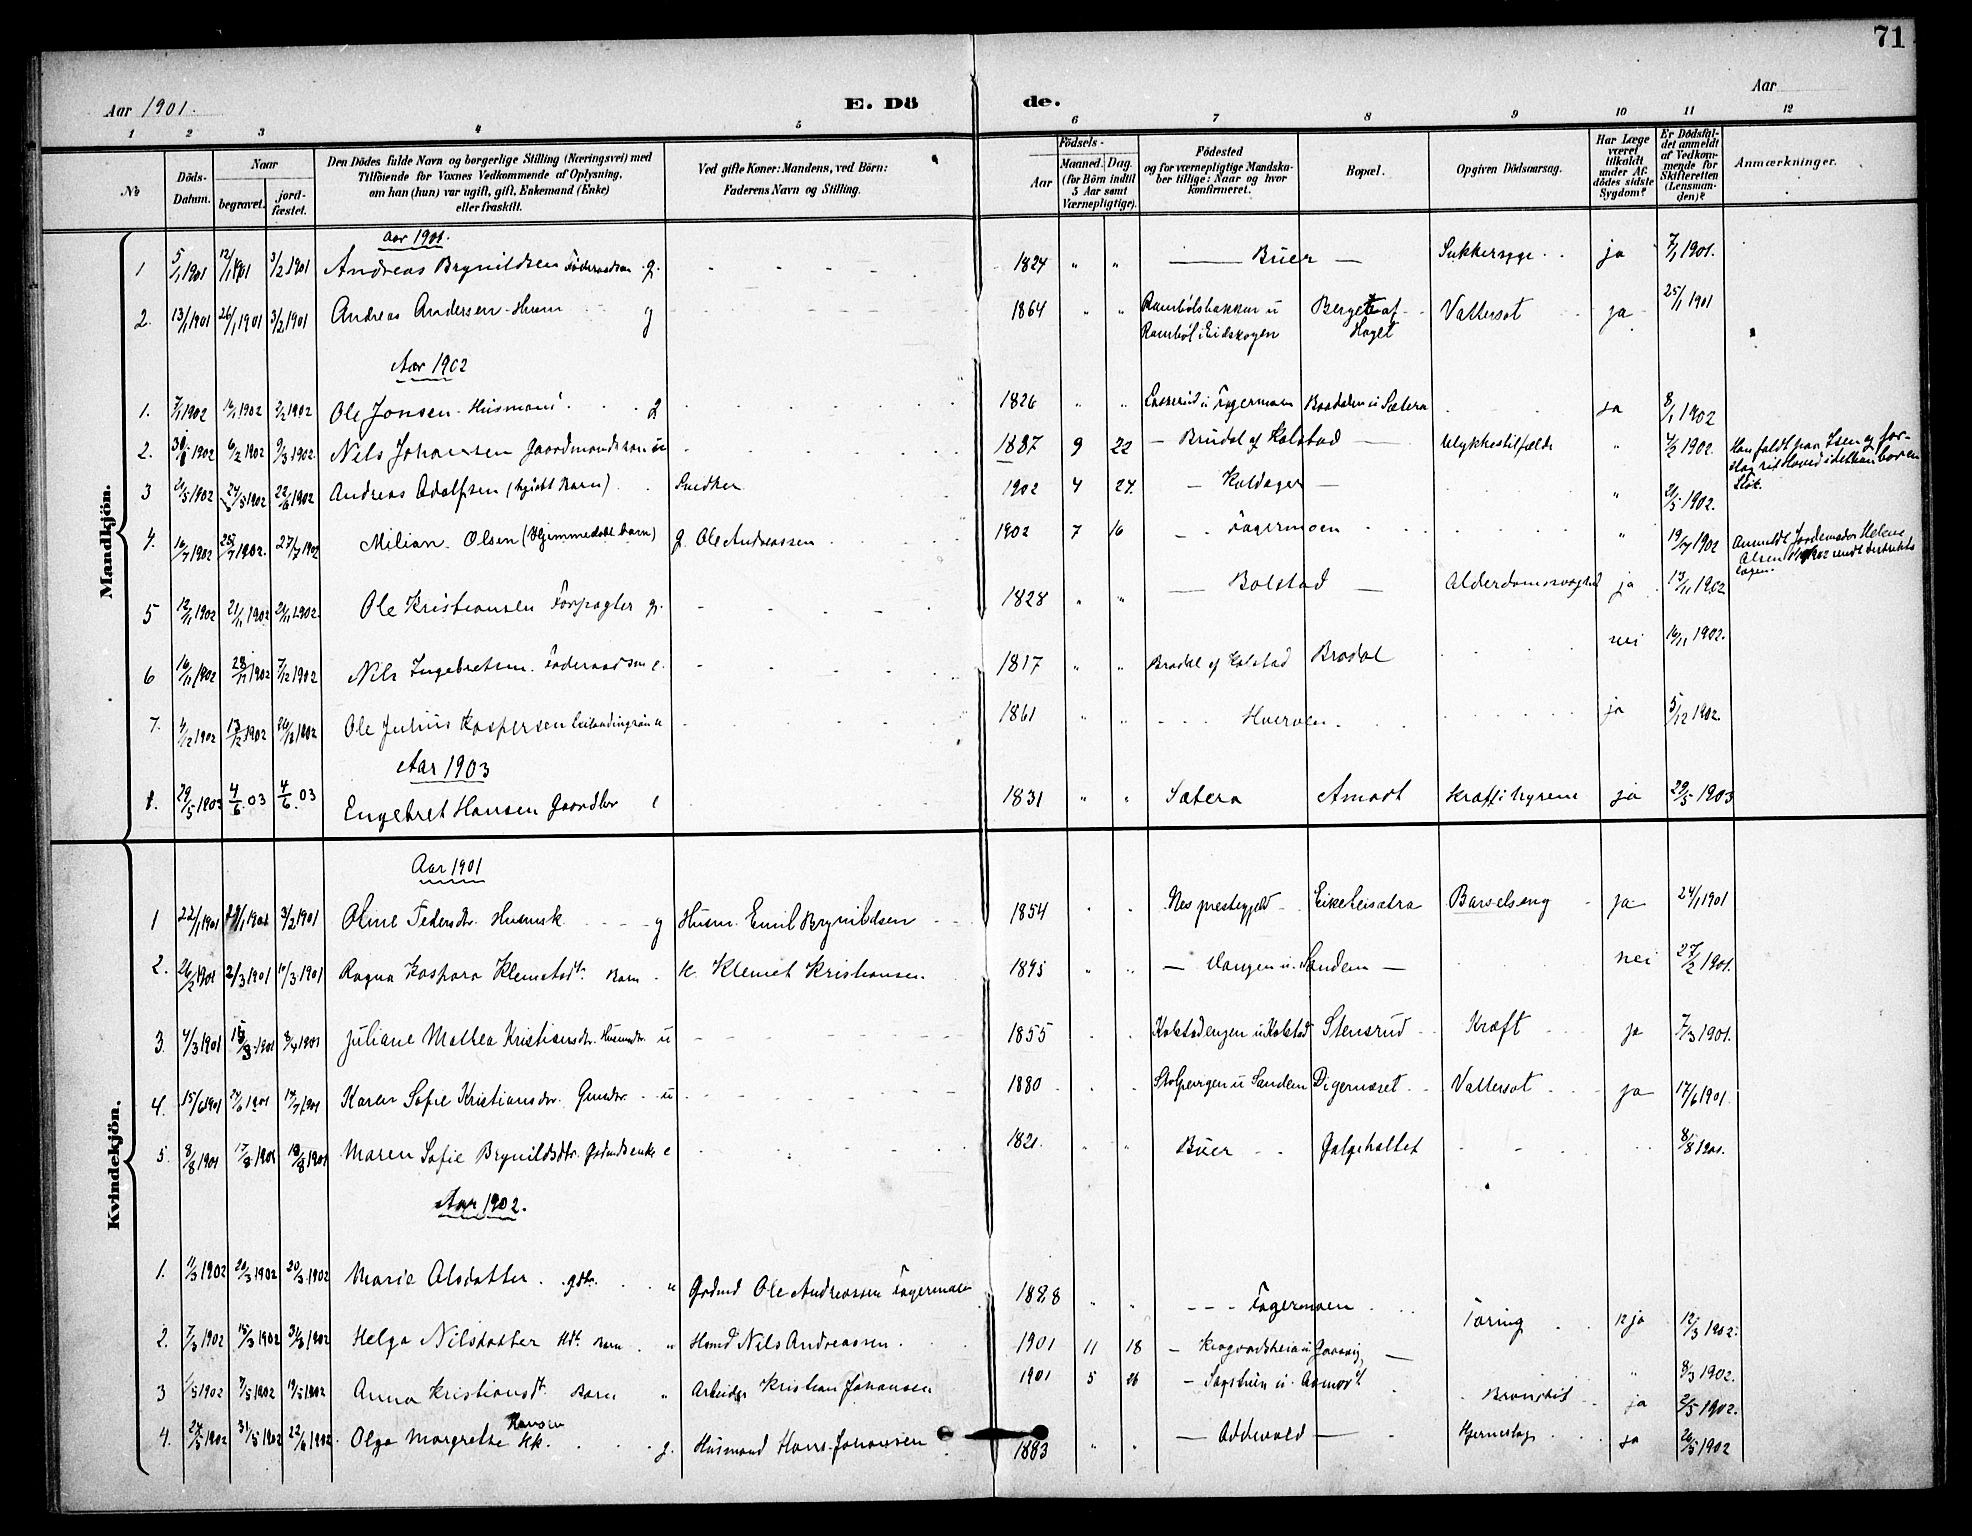 71
Aar 1901.
E. Dö de.
Aar
1 2 3 4 5 6 7 8 9 10 11 12
No
Döds-Datum.
Naar
begravet. jord-fæstet.
Den Dödes fulde Navn og borgerlige Stilling (Næringsvei) med
Tilföiende for Voxnes Vedkommende af Oplysning,
om han (hun) var ugift, gift, Enkemand (Enke)
eller fraskilt.
Ved gifte Koner: Mandens, ved Börn:
Faderens Navn og Stilling.
Födsels-
Aar
Maaned. Dag.
(for Börn indtil
5 Aar samt
Værnepligtige).
Födested
og for værnepligtige Mandska-
ber tillige: Naar og hvor
konfirmeret.
Bopæl.
Opgiven Dödsaarsag.
Har Læge
været
tilkaldt
under Af-
dödes sidste
Sygdom?
Er Dödsfal-
det anmeldt
af Vedkom-
mende for
Skifteretten
(Lensman-
den)?
Anmærkninger.
Mandkjön.
Aar 1901.
1 5/1 1901 12/1 1901 3/2 1901 Andreas Brynildsen Föderaadsm g. 1824 " " Buer Sukkersyge ja 7/1 1901.
2. 13/1 1901 26/1 1901 3/2 1901 Andreas Andersen Husm g 1864 " " Rambölsbakken u Berget af Vattersot ja 25/1 1901
Ramböl i Eidskogen Haget
Aar 1902
1. 7/1 1902 1902 1902 Ole Jonsen Husmand 1826 " " u Fagermoen Baadalen u Sætera ja 8/1 1902
2. 1902 6/2 1902 9/3 1902 Nils Johansen Gaardmandssøn u 1887 9 22 Brudal af Kolstad Ulykkestilfælde " 1902. Han faldt paa Isen og for-
slog sit Hoved
3 1902 24/5 1902 22/6 1902 Andreas Adolfsen (Barn) Snedker 1902 4 27. Koldager " 21/5 1902.
4. 16/7 1902 25/7 1902. 27/7 1902 Milian Olsen (Hjemmedöbt barn) g. Ole Andreassen 1902 7 16 Fagermoen " 19/7 1902 Anmeldt Jordemoder Helene
Olsen
5 12/11 1902 21/11 1902 1902. Ole Kristiansen Forpagter g. 1828 " " Bolstad Alderdomssvaghed ja 13/11 1902
6 16/11 1902 28/11 1902 7/12 1902 Nils Ingebretsen Föderaadsm e. 1817 " " Bradal af Kolstad Bradal nei 16/11 1902.
7. 4/12 1902 13/12 1902 1902 Ole Julius Kaspersen u 1861 " " Hverven ja 5/12 1902.
Aar 1903
1. 29/5 1903 4/6 03 4/6 03 Engebret Hansen Gaardbr e 1831 " " Sætera Amodt Kræft i Nyrene ja 29/5 1903
Kvindekjön.
Aar 1901
1 22/1 1901 1901 3/2 1901 Oline Pedersdtr. Husmsk g Husm. Emil Brynildsen 1854 Nes prestegjeld Eikeleisætra Barselseng ja 24/1 1901
2. 26/2 1901 2/3 1901 10/3 1901 Ragna Kaspara Klemetsdtr. Barn K. Klemet Kristiansen 1895 " " Vangen u. Sandem nei 27/2 1901.
3. 4/3 1901 1901 8/4 1901 Juliane Mathea Kristiansdtr. Husmdtr. u 1855 Kolstadengen u Kolstad Stensrud Kræft ja 7/3 1901.
4. 15/6 1901 1901 14/7 1901 Karen Sofie Kristiansdtr. Gmdtr. u 1880 Stolpevigen u Sandem Digernæset Vattersot ja 17/6 1901.
5. 8/8 1901 17/8 1901 18/8 1901 Maren Sofie Brynildsdtr. Gaardmdsenke e 1821. " " Buer Galgeholtet 8/8 1901.
Aar 1902.
1. 11/3 1902 20/3 1902 20/3 1902 Marie Olsdatter. gdtr. " Gadmd Ole Andreassen Fagermoen 1888 " " Fagermoen Tæring ja 12/3 1902.
2. 7/3 1902 15/3 1902 1902 Helga Nilsdatter Hdt. Barn " Husmd Nils Andreassen 1901 11 18 " 8/3 1902.
3 1/5 1902 9/5 1902 19/5 1902 Anna Kristiansdt. Barn " Arbeider Kristian Johansen 1901 5 26 u. Aamodt Bronchit ja 2/5 1902.
4. 24/5 1902 31/5 1902 22/6 1902 Olga Margrethe Hansen KK. g. Husmand Hans Johansen 1883 " " Oddevold Hjerneslag ja 26/5 1902